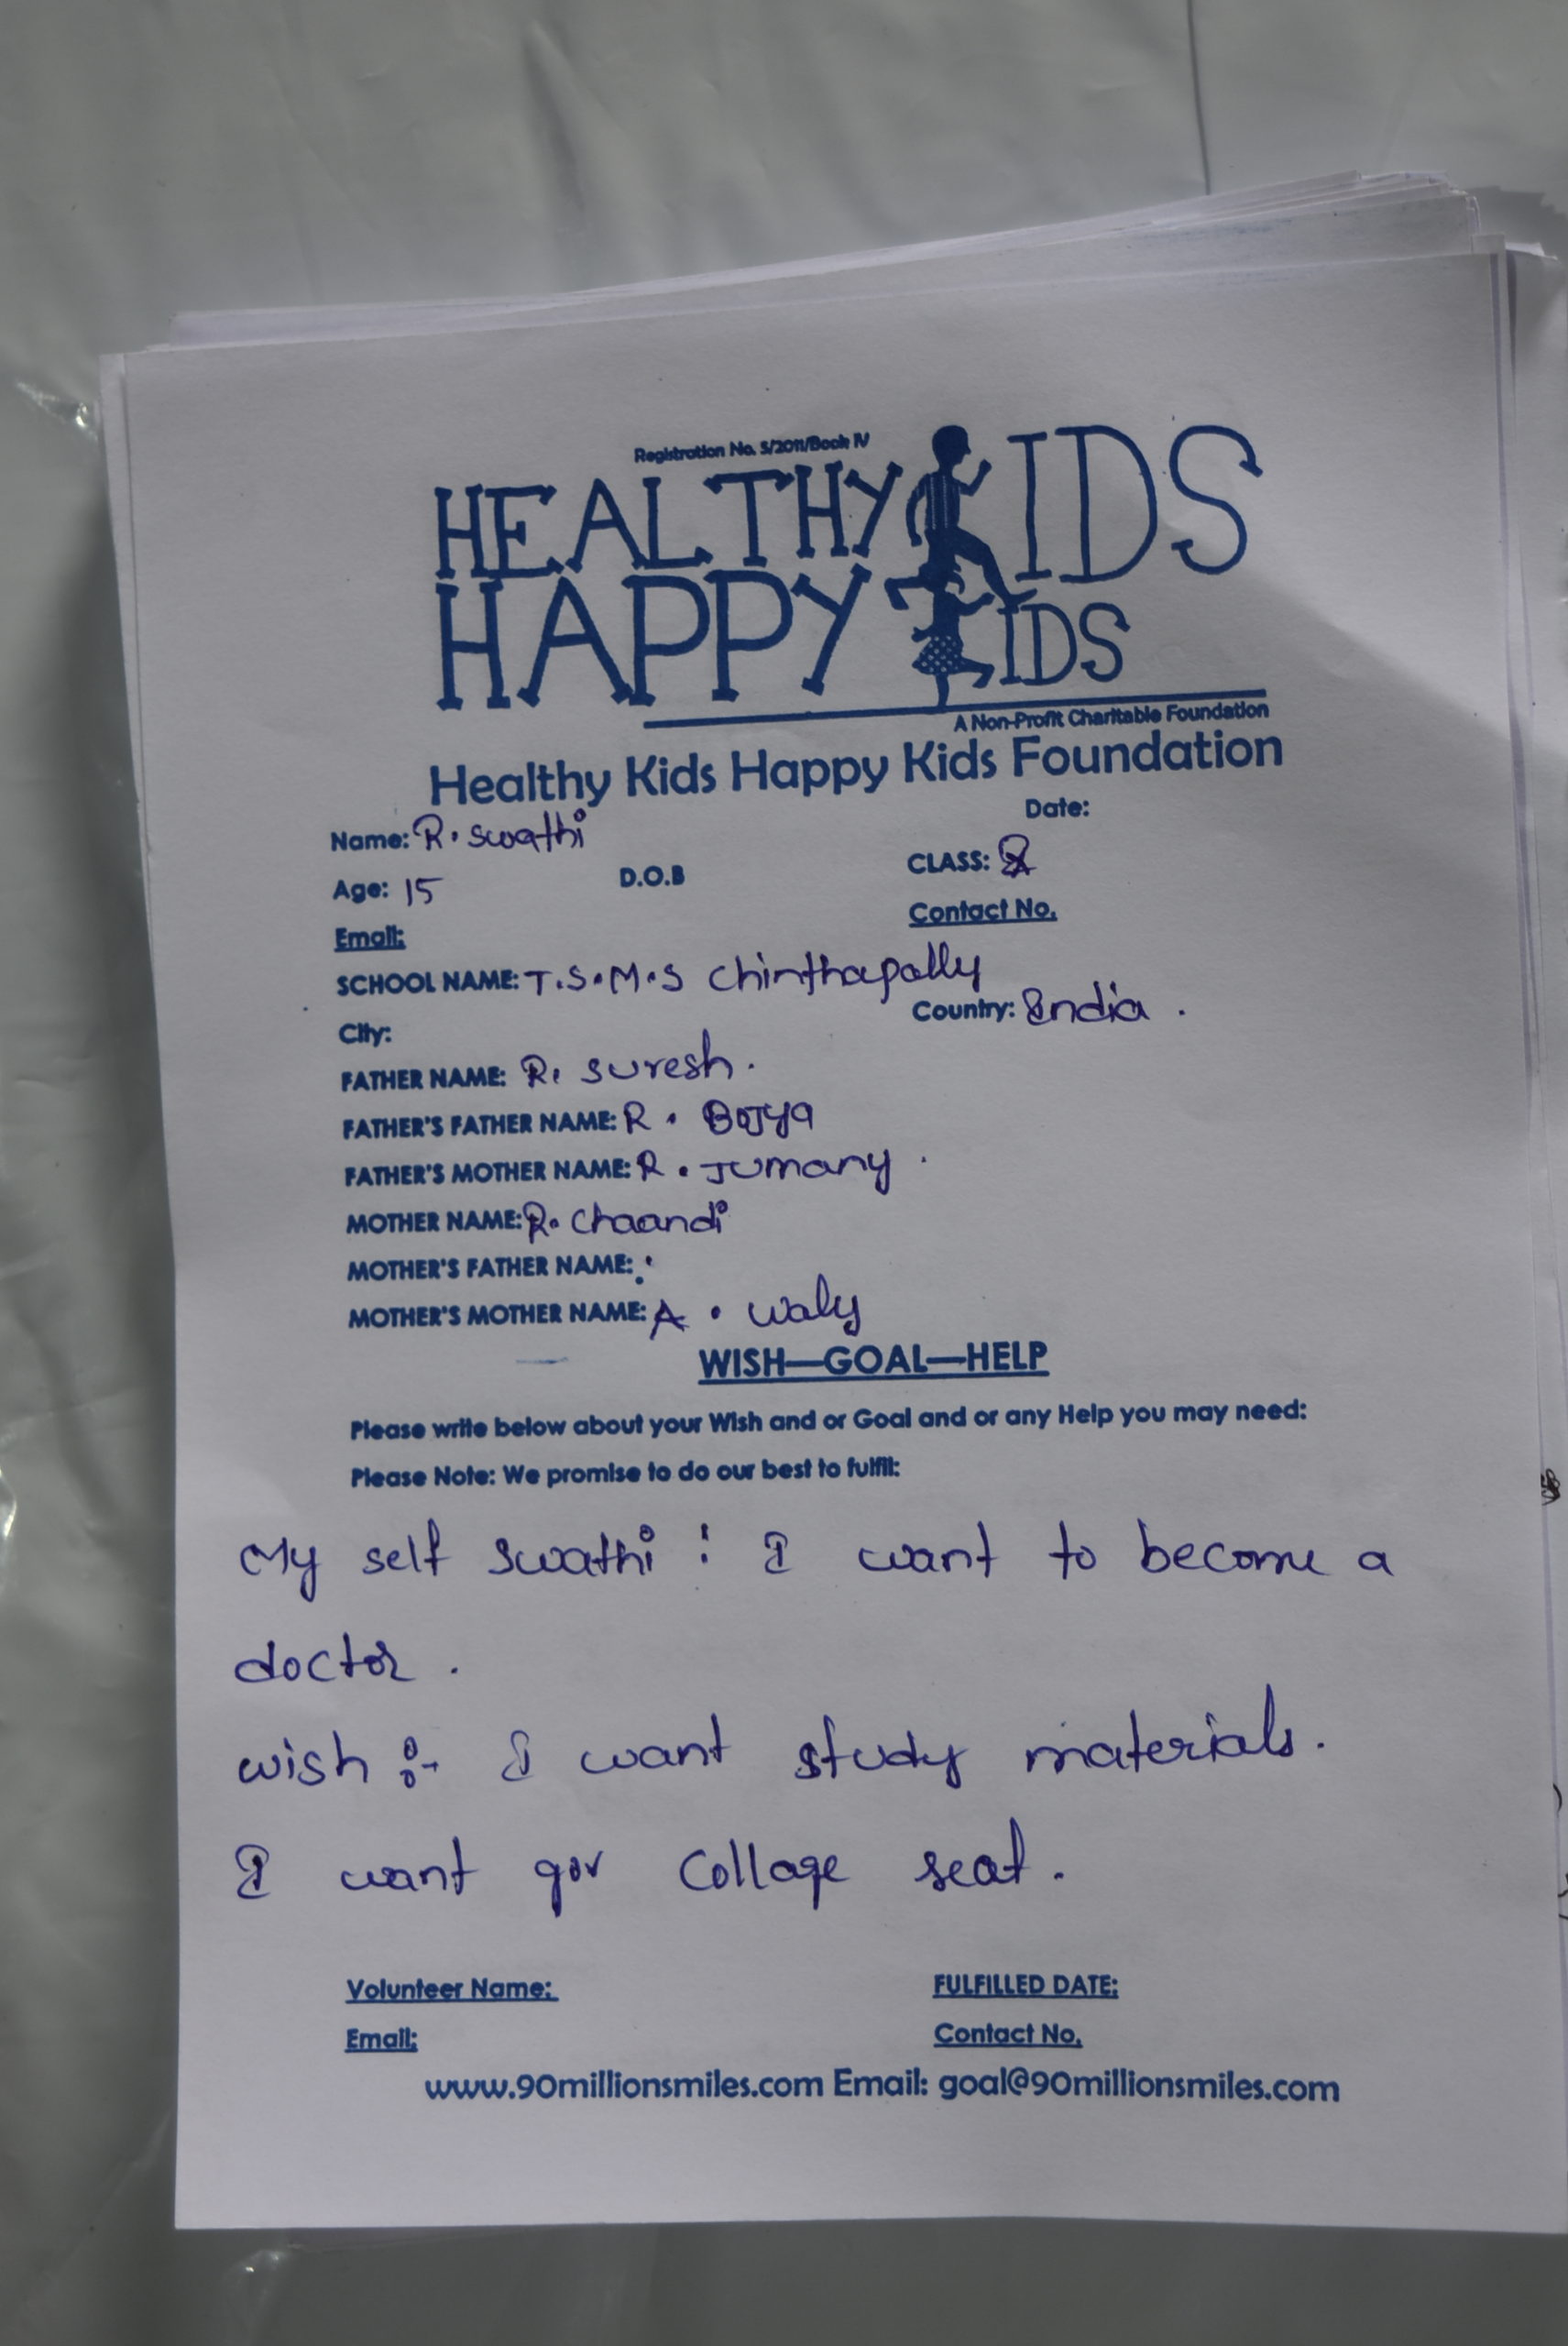 Registration No. 5/2011/Book IV
HEALTHY KIDS
HAPPY KIDS
A Non-Profit Charitable Foundation
Healthy Kids Happy Kids Foundation
Date:
Name: R. swathi
Age: 15 D.O.B CLASS:
Email: Contact No.
SCHOOL NAME: T.S.M.S Chinthapally
City: Country: India .
FATHER NAME: R. Suresh.
FATHER'S FATHER NAME: R .
FATHER'S MOTHER NAME: R . Jumany .
MOTHER NAME: R. Chaandi
MOTHER'S FATHER NAME: :
MOTHER'S MOTHER NAME: A . waly
WISH—GOAL—HELP
Please write below about your Wish and or Goal and or any Help you may need:
Please Note: We promise to do our best to fulfil:
My self Swathi : I want to become a
doctor .
wish :- I want study materials.
I want gov Collage seat.
Volunteer Name: FULFILLED DATE:
Email: Contact No.
www.90millionsmiles.com Email: goal@90millionsmiles.com